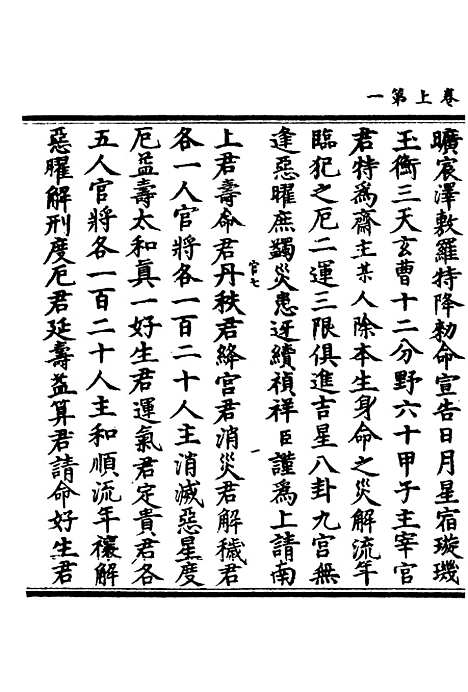 卷上第一
曠宸澤敷羅特降勑命宣告日月星宿璇璣
玉衡三天玄曹十二分野六十甲子主宰官
君特為齋主某人除本生身命之災解流年
臨犯之厄二運三限俱進吉星八卦九宮無
逢惡曜庶蠲災患迓續禎祥臣謹為上請南
官七
上君壽命君丹秩君絳宮君消災君解穢君
各一人官將各一百二十人主消滅惡星度
厄益壽太和真一好生君運氣君定貴君各
五人官將各一百二十人主和順流年禳解
惡曜解刑度厄君延壽益算君請命好生君